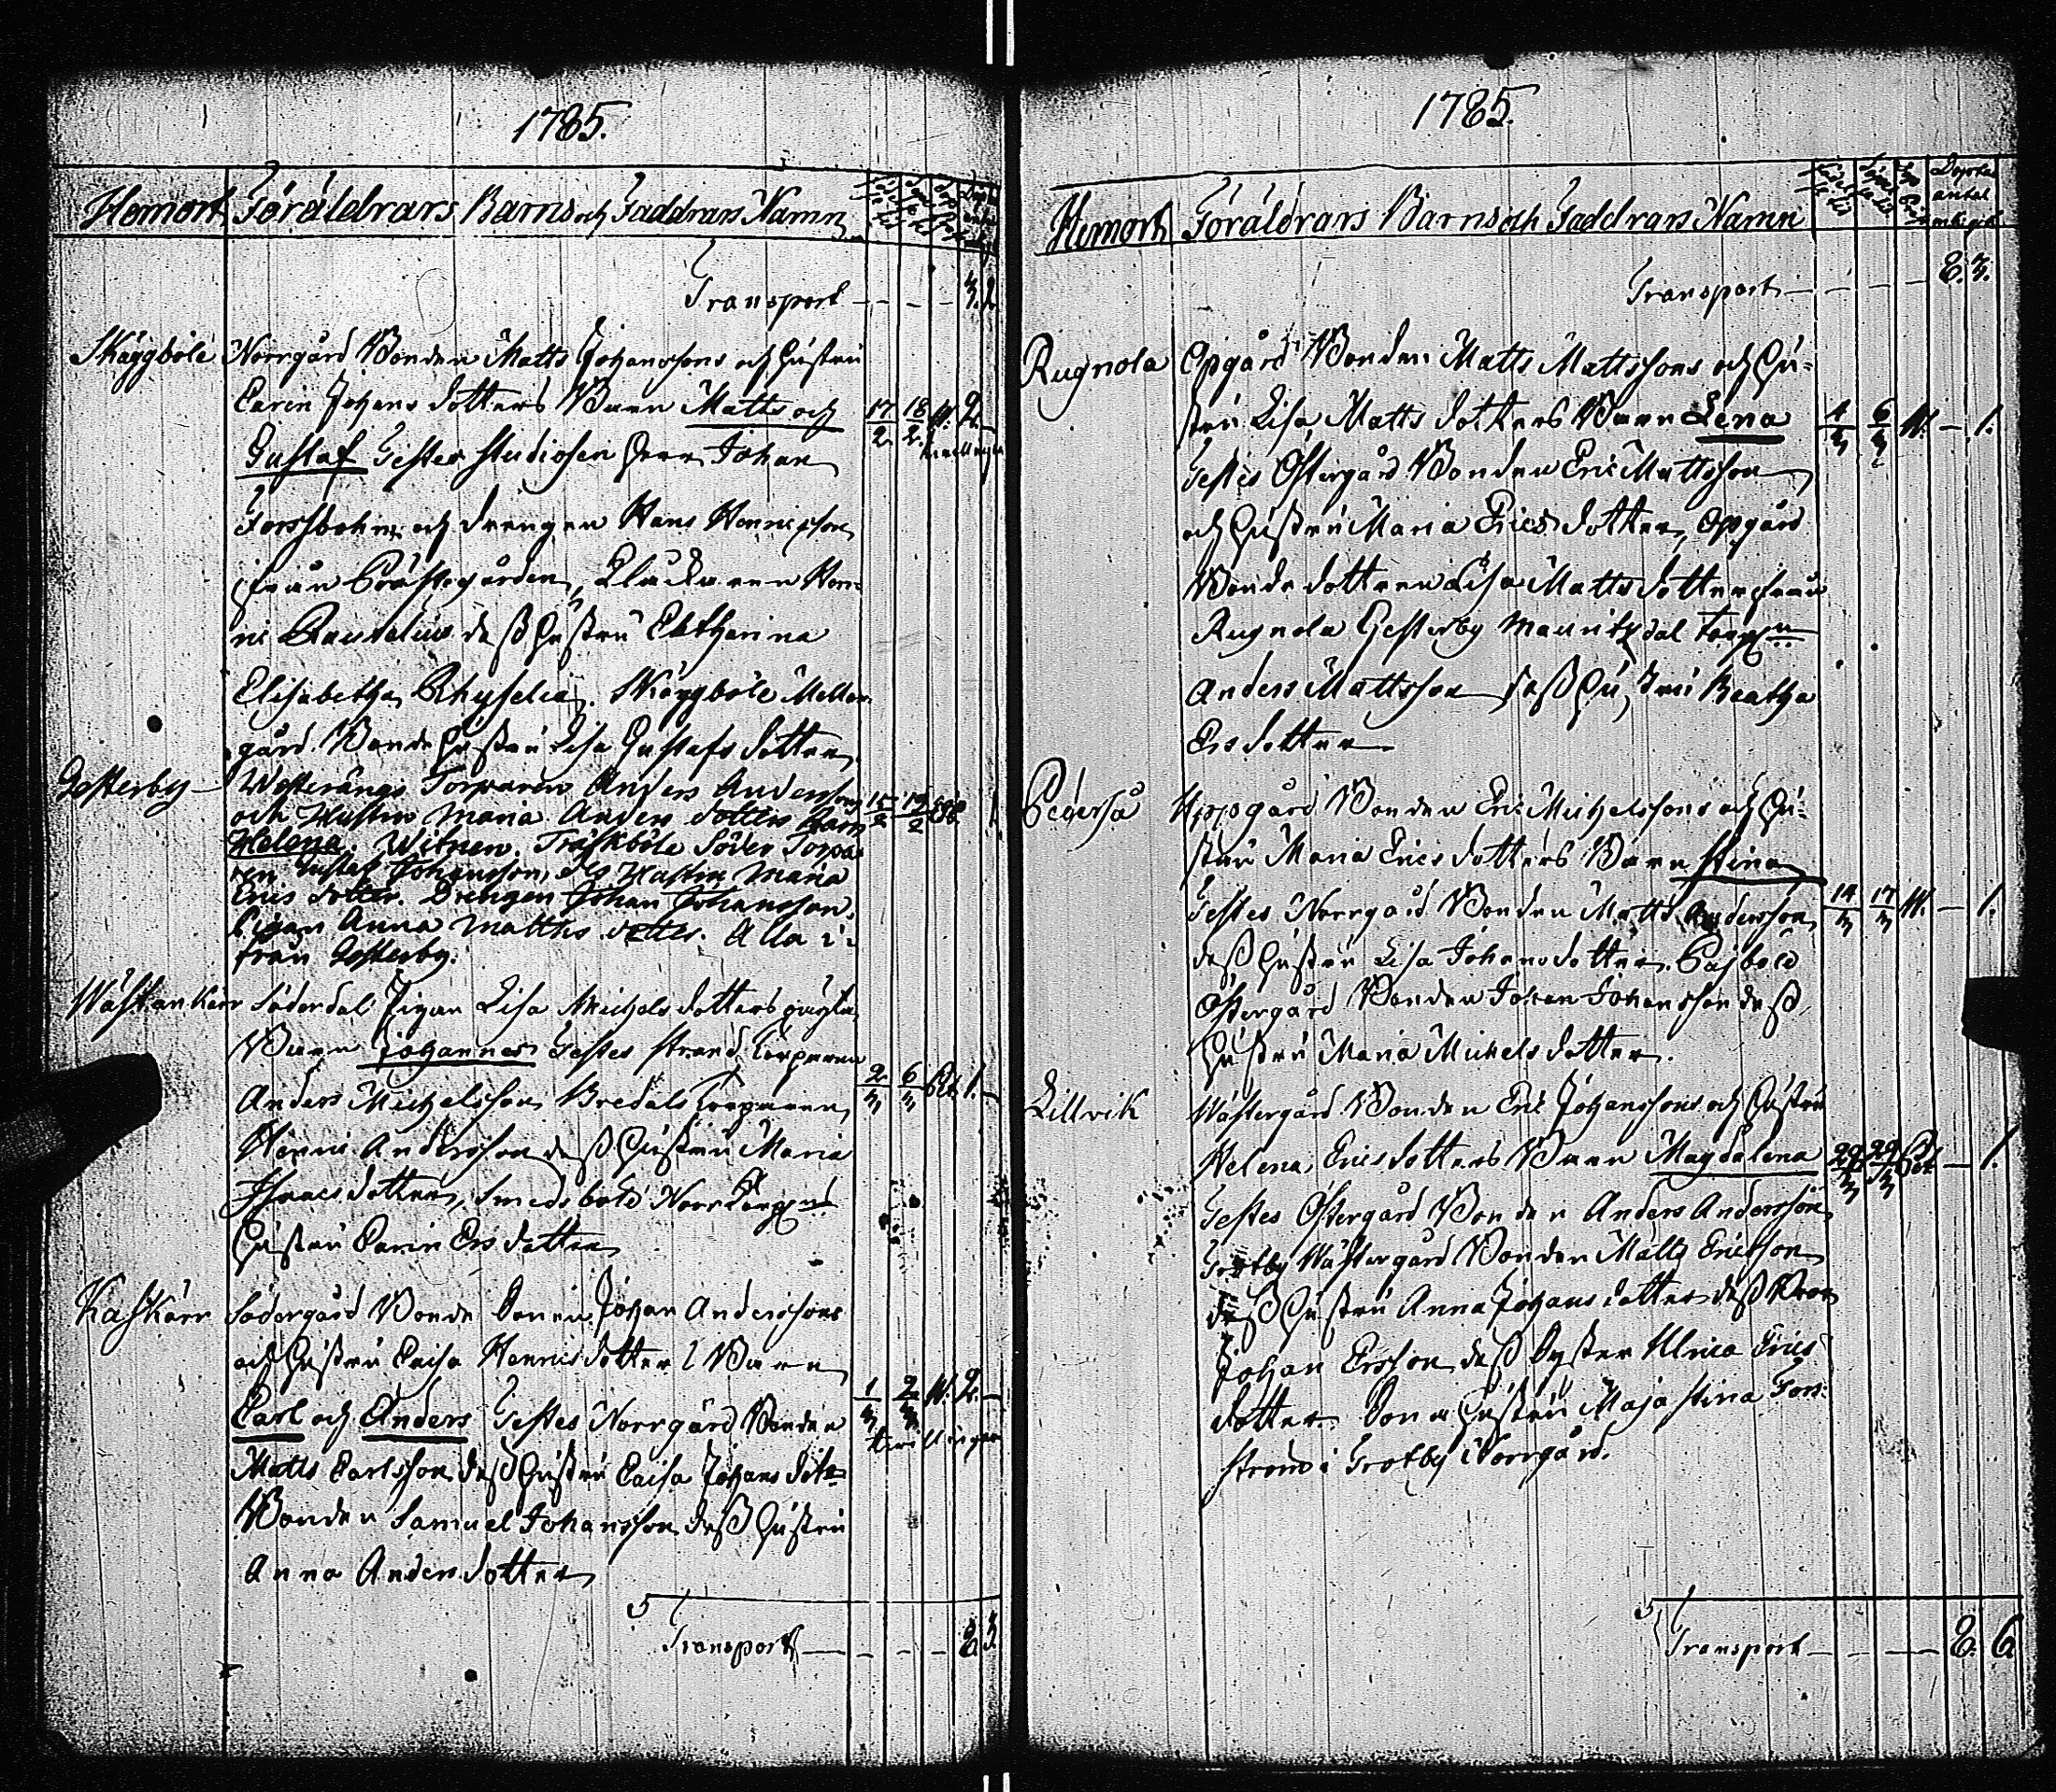 1785.
Hemort Föräldrars Barns och Faddrars Namn
Transport 3. 2
Skäggböle Norrgård Bonden Matts Johanssons och hustru
Carin Johans dotters Barn Matts och 17/2 18/2 W. 2. –
Gustaf Testes studiosen Herr Johan tvillingar
Forssbohm och drengen Hans Henricsson
ifrån Prästegården, Klåckaren Hen-
ric Paulelius dess hustru Catharina
Elisabetha Rhyselia. Skäggböle Mellan-
gård Bonde hustru Lisa Gustafs dotter
Gesterby Westerängs Torparen Anders Anderssons 15/2 19/2 1.
och Hustru Maria Anders dotters Barn
Helena. Witnen. Träskböle Söder Torpa-
ren Gustaf Johansson, dess Hustru Maria
Erics dotter. Drengen Johan Johansson.
Pigan Anna Matths dotter. Alla i-
från Gesterby.
Wästankärr Söderdal Pigan Lisa Michels dotters oägta
Barn Johannes Testes strand Torparen
Anders Michelsson, Bredals Torparen 2/3 6/3 1. –
Henric Andersson dess hustru Maria
Israels dotter, Smedsböle Norr Torp:s
hustru Carin Ersdotter
Kaskärr Södergård Bonde Sonen Johan Anderssons
och hustru Caisa Henricsdotters Barn
Carl och Anders Testes Norrgård Bonden 1/3 2/3 W. 2. –
Matts Carlsson dess hustru Caisa Johans dotter tvillingar
Bonden Samuel Johansson dess hustru
Anna Anders dotter
5
Transport 8. 3.
1785.
Hemort Föräldrars Barns och Faddrars Namn Döptes antal
Transport 8. 3.
Rugnola Opgård Bonden Matts Mattssons och hu-
stru Lisa Matts dotters Barn Lena 4/3 6/3 W. – 1.
Testes Östergård Bonden Eric Mattsson
och hustru Maria Erics dotter, Opgård
Bonde dottren Lisa Matts dotter från
Rugnola Gesterby Mauritzdal Torp:n
Anders Mattsson dess hustru Beatha
Ersdotter
Pederså Uppgård Bonden Eric Michelssons och hu-
stru Maria Erics dotters Barn Stina
Testes Norrgård Bonden Matts Andersson 14/3 17/3 W. – 1.
dess hustru Lisa Johans dotter. Pajböle
Östergård Bonden Johan Johansson dess
hustru Maria Michels dotter.
Lillvik Wästergård Bonden Eric Johanssons och hustru
Helena Ericsdotters Barn Magdalena 29/3 29/3 – 1.
Testes Östergård Bonden Anders Andersson
Grotby Wästergård Bonden Matts Ericsson
dess hustru Anna Johans dotter dess Bror
Johan Ersson dess Syster Ulrica Erics
dotter Sone hustrun Maja Stina Fors-
ström i Grotby Norrgård.
3
Transport 8. 6